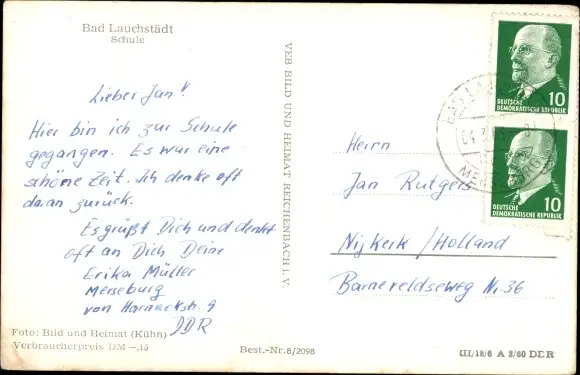 Bad Lauchstädt
Schule
Lieber Jan!
Hier bin ich zur Schule
gegangen. Es war eine
schöne Zeit. Ich denke oft
daran zurück.
Es grüßt Dich und denkt
oft an Dich Deine
Erika Müller
Merseburg
von Harnackstr. 9
DDR
Foto: Bild und Heimat (Kühn)
Verbraucherpreis DM -,15
VEB BILD UND HEIMAT REICHENBACH I. V.
Best.-Nr. 8/2098
10
DEUTSCHE
DEMOKRATISCHE REPUBLIK
10
DEUTSCHE
DEMOKRATISCHE REPUBLIK
Herrn
Jan Rutgers
Nijkerk/Holland
Barneveldseweg Nr. 36
III/18/6 A 2/60 DDR